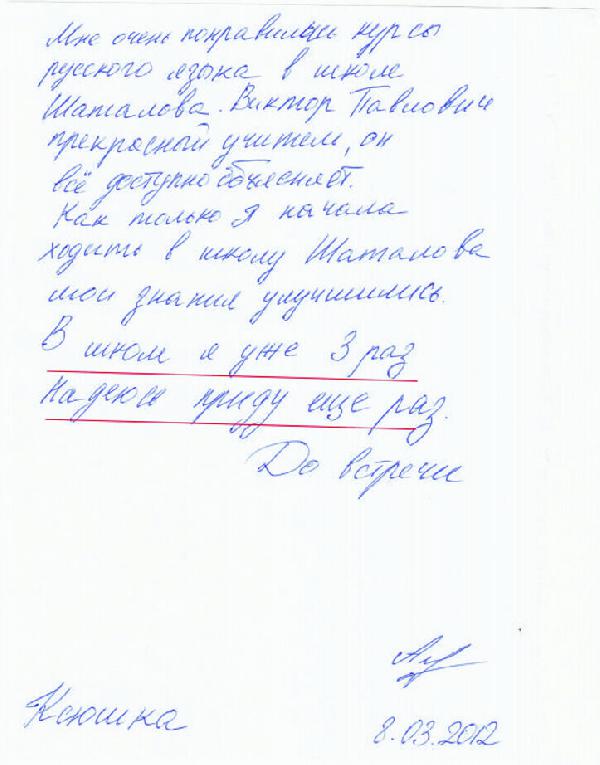 Мне очень понравились курсы
русского языка в школе
Шаталова. Виктор Павлович
прекрасный учитель, он
всё доступно объясняет.
Как только я начала
ходить в школу Шаталова
мои знания улучшились.
В школе я уже 3 раз
Надеюсь приду еще раз.
До встречи
Ксюшка
8.03.2012